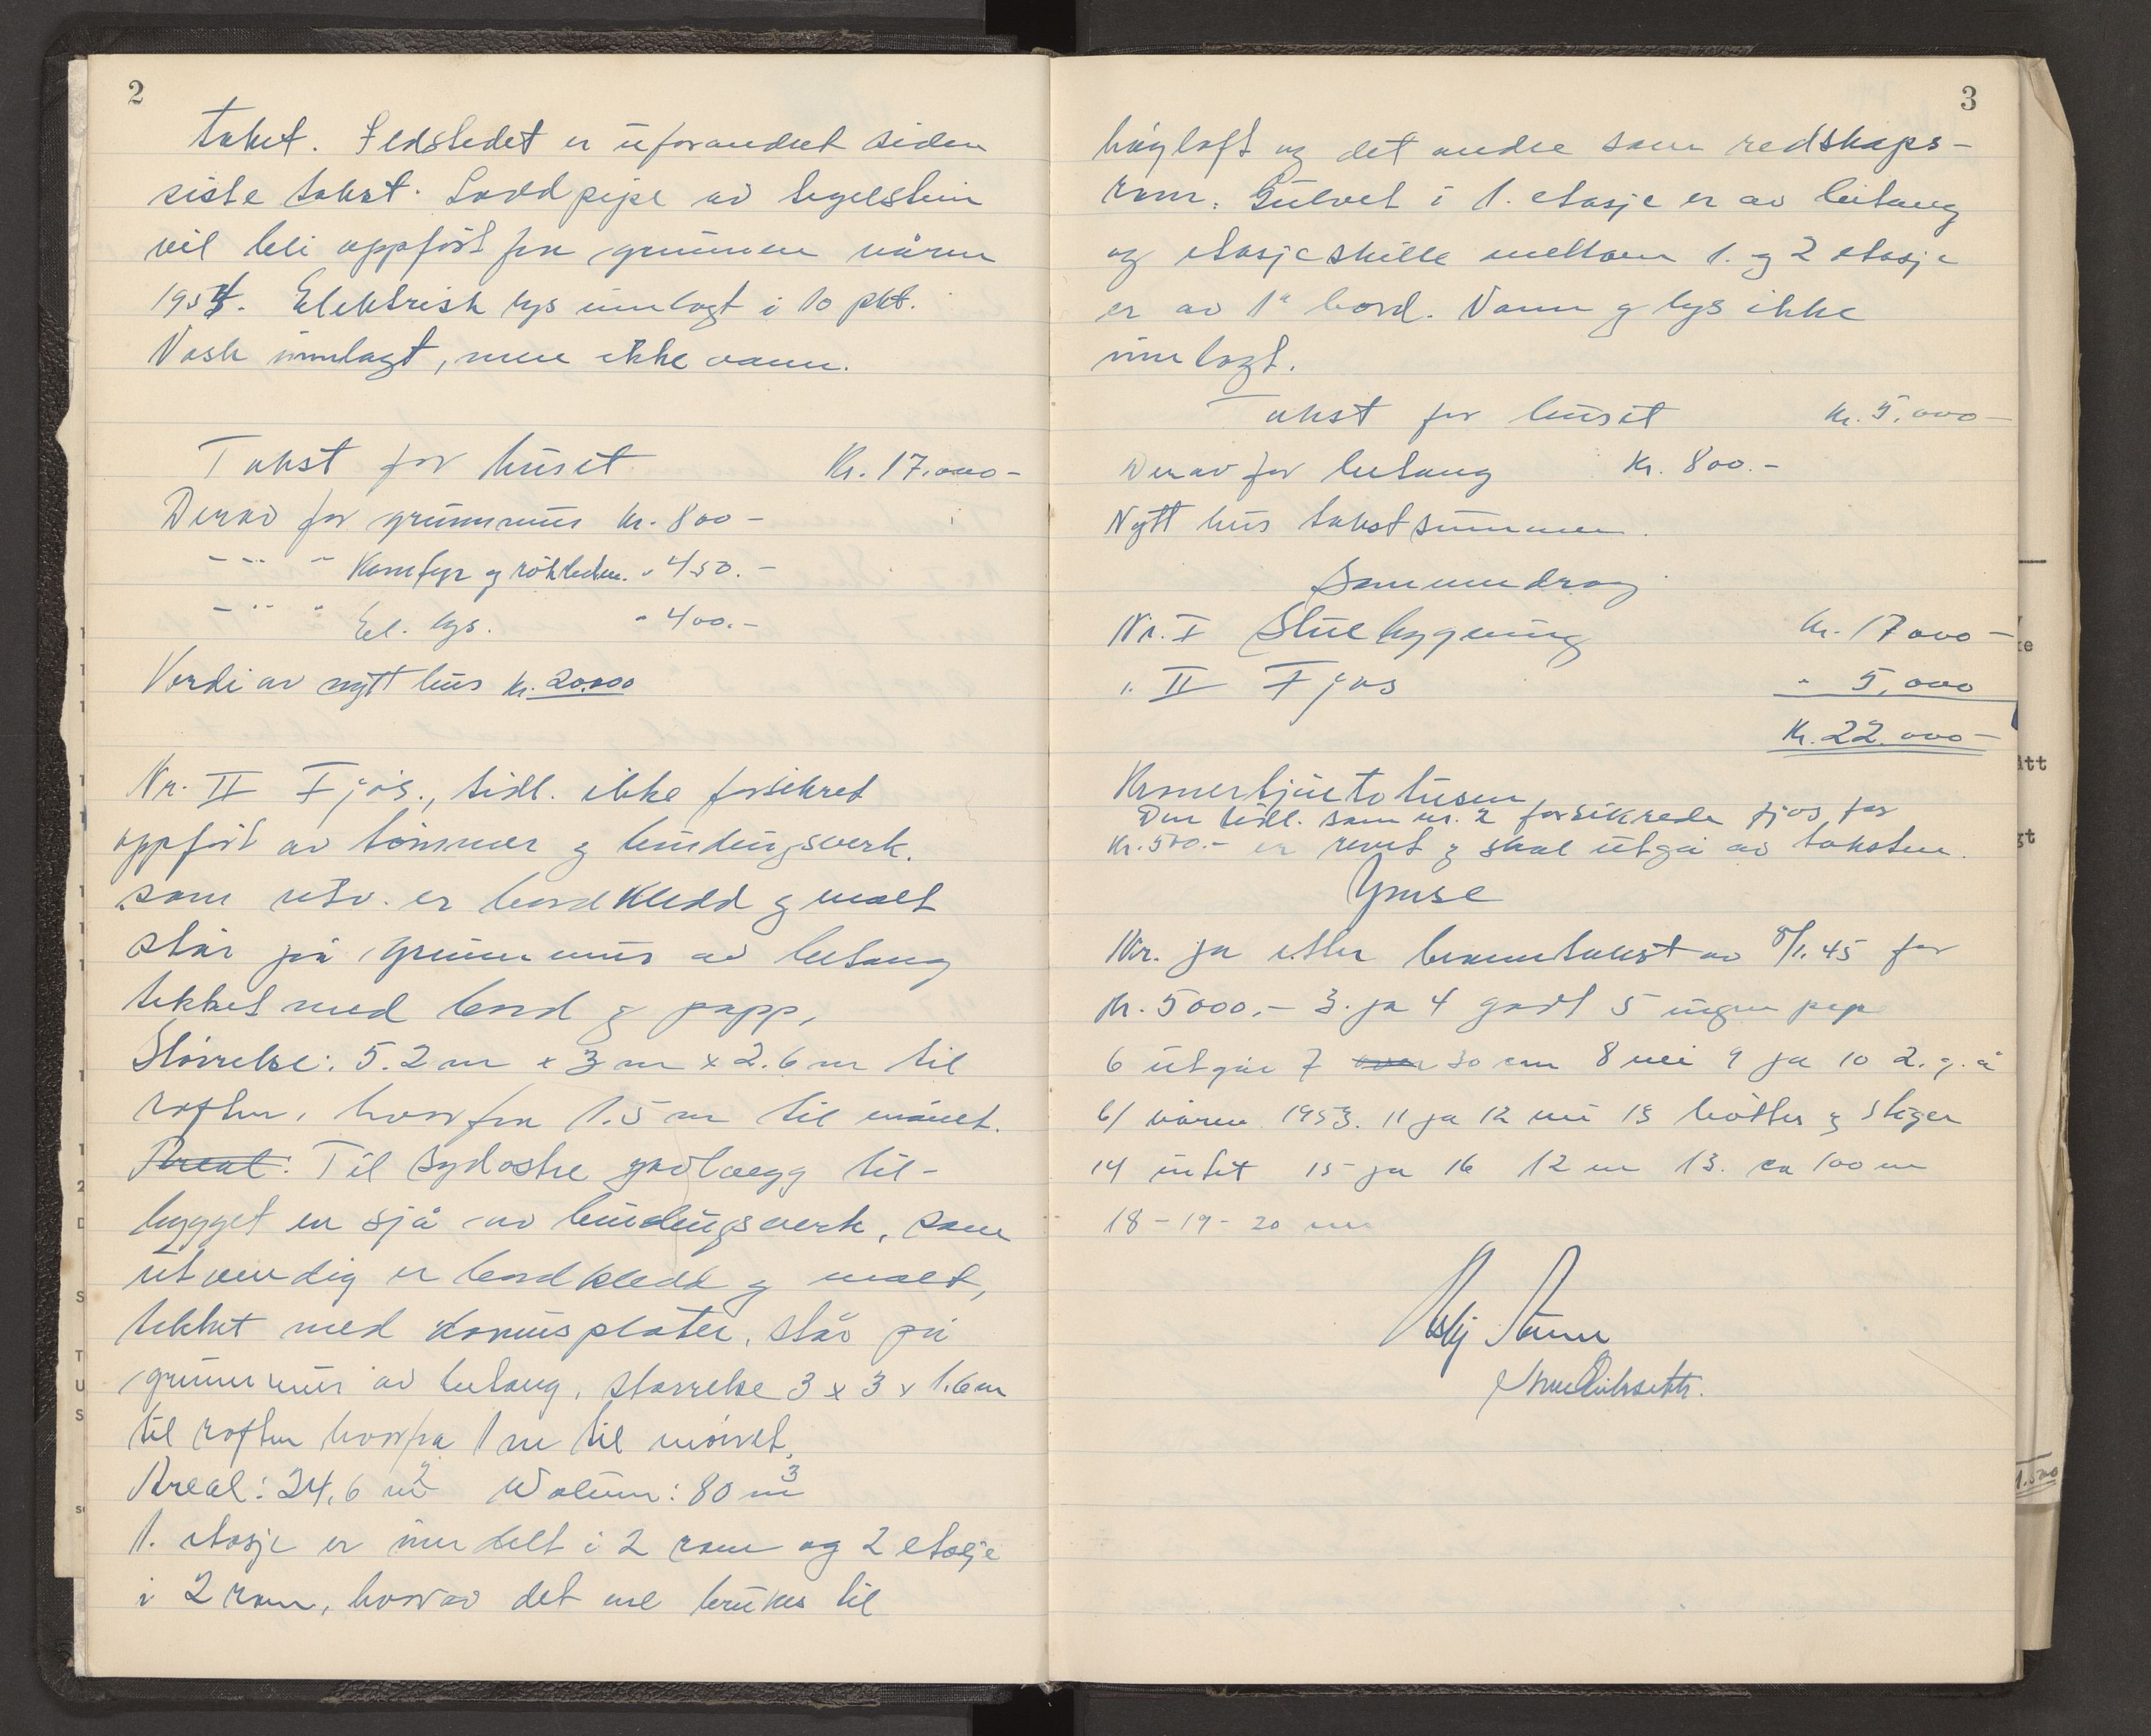 2
taket. Ildstedet er uforandret siden
siste takst. Lovd pipe av tegelstein
vil bli oppført fra grunnen våren
1954. Elektrisk lys innlagt i 10 pkt.
Vask innlagt, men ikke vann.
Takst for huset Kr. 17.000-
Derav for grunnmur kr. 800-
- " - " Komfyr og rökleden. " 450.-
- " - " El. lys. " 400.-
Verdi av nytt hus kr. 20.000
Nr. II Fjös., tidl. ikke forsikret
oppført av tömmer og bindingsverk.
som utv. er bordkledd og malt
står på grunnmur av betong
tekket med bord og papp,
Störrelse: 5.2 m x 3 m x 2.6 m til
raften, hvorfra 1.5 m til mönet.
Areal: Til sydöstre gavlvegg til-
bygget en sjå av bindingsverk, som
utvendig er bordkledd og malt,
tekket med donnusplater, står på
grunnmur av betong, størrelse 3 x 3 x 1.6 m
til raften hvorfra 1 m til mönet.
Areal: 24,6 m2 Volum: 80 m3
1. etasje er inndelt i 2 rom og 2 etasje
i 2 rom, hvorav det ene brukes til
3
höyloft og det andre som redskaps-
rom. Gulvet i 1. etasje er av betong
og etasjeskille mellom 1. og 2 etasje
er av 1" bord. Vann og lys ikke
innlagt.
Takst for huset Kr. 5.000-
Derav for betong Kr. 800.-
Nytt hus takstsummen.
Sammendrag
Nr. I Stuebygning Kr. 17000-
" II Fjøs " 5.000
Kr. 22.000-
Kronertjuetotusen
Den tidl. som nr. 2 forsikrede fjös for
Kr. 500.- er revet og skal utgå av taksten.
Ymse
Nr. ja etter branntakst av 8/1.45 for
Kr. 5000.- 3. ja 4 godt 5 ingen pipe
6 utgår 7 30 cm 8 nei 9 ja 10 2. g. å
6/ våren 1953. 11 ja 12 nei 13 bötter og stiger
14 intet 15 ja 16 12 m 13. ca 100 m
18 - 19 - 20 nei